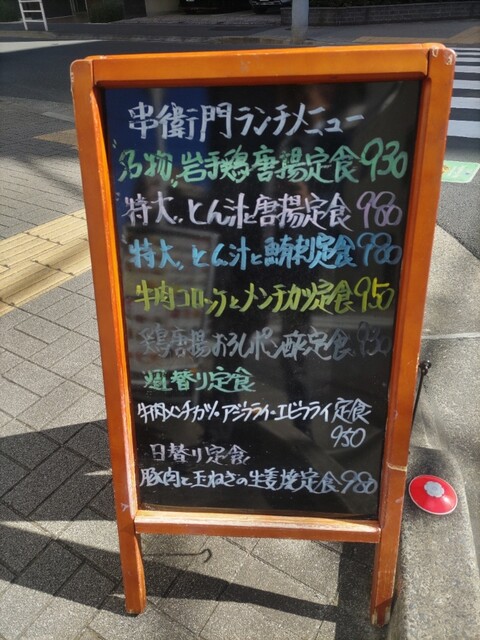 串衛門ランチメニュー
"名物"岩手鶏唐揚定食930
"特大"とん汁と唐揚定食980
"特大"とん汁と鮪刺定食980
牛肉コロッケとメンチカツ定食950
鶏唐揚おろしポン酢定食930
週替り定食
牛肉メンチカツ・アジフライ・エビフライ定食
950
日替り定食
豚肉と玉ねぎの生姜焼定食980